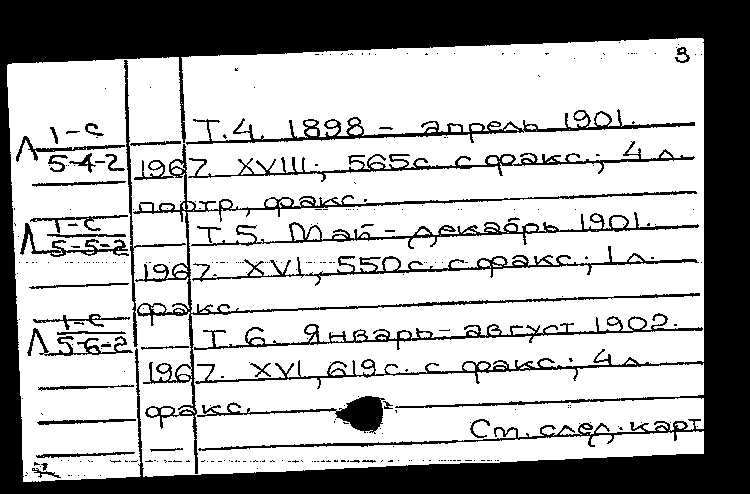 3
1-С Т.4. 1898 - апрель 1901.
Л 5-4-2 1967. XVIII; 565с. с факс.; 4 л.
портр., факс.
1-С Т.5. Май - декабрь 1901.
Л 5-5-2
1967. XVI, 550с. с факс.; 1 л.
факс.
1-С Т.6. Январь - август 1902.
Л 5-6-2
1967. XVI, 619с. с факс.; 4 л.
факс.
См. след. карт